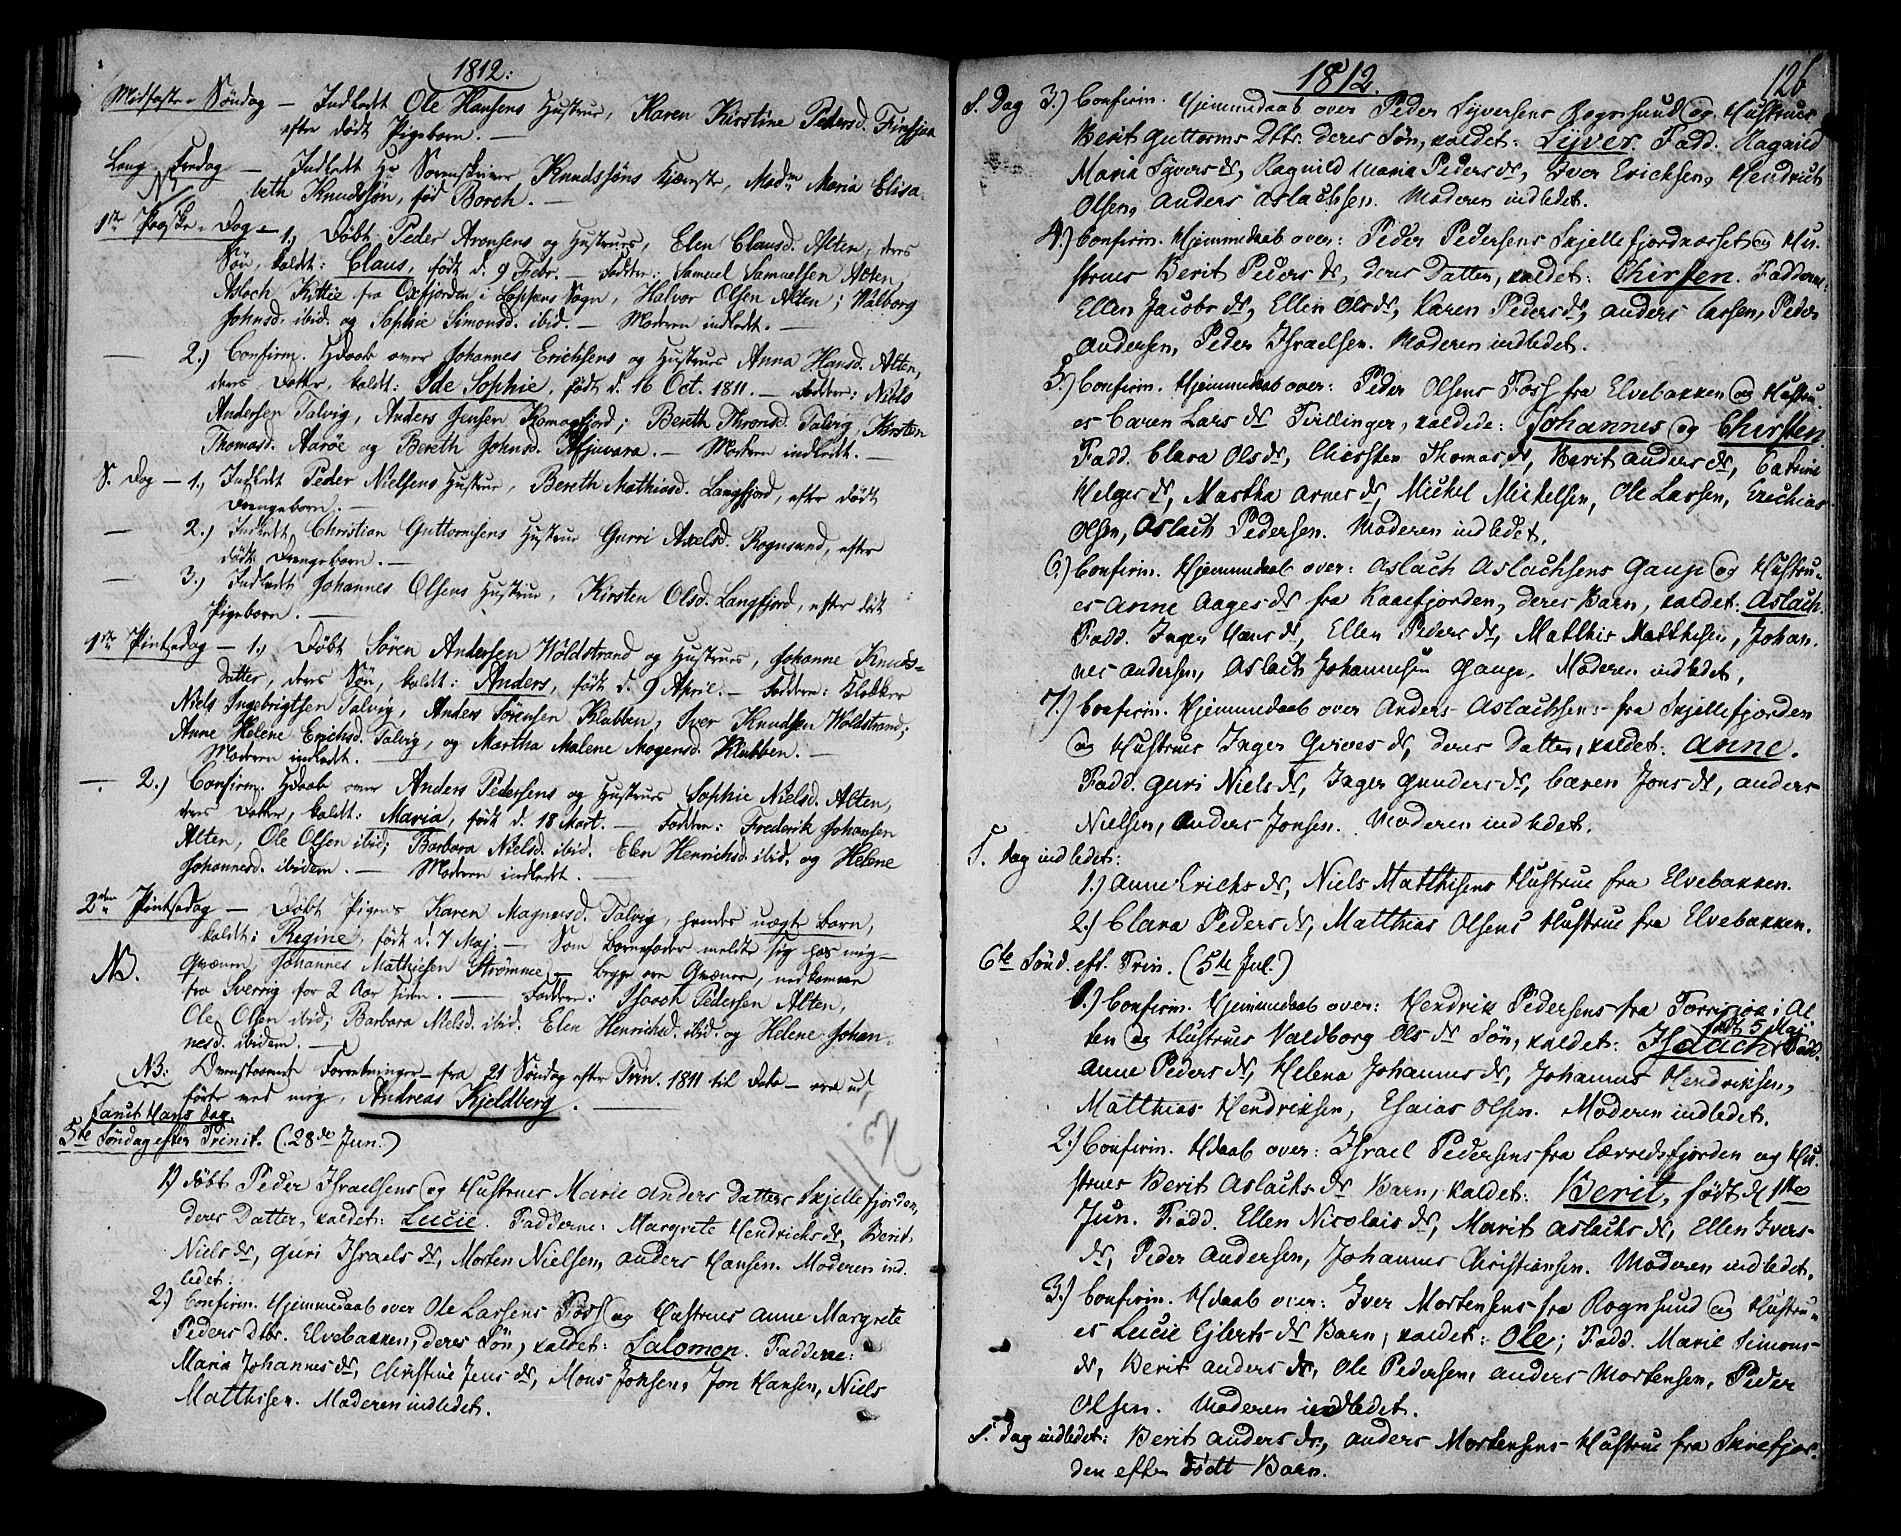 1812:
Midfaste-Söndag — Indledt Ole Hansens Hustrue, Karen Kirstine Pedersd. Finsjua
efter dödt Pigebarn. —
Lang-Fredag — Indledt Hr Sorenskriver Knudssöns Kjereste, Madm Maria Elisa-
beth Knudssön, föd Borch. —
1ste Paaske-Dag — 1.) Döbt Peder Aronsens og Hustrues, Elen Clausd. Alten, deres
Sön, kaldt: Claus, födt d. 9 Febr. — Faddere: Samuel Samuelsen Alten,
Aslach Kittie fra Oxfjorden i Loppens Sogn, Halvor Olsen Alten; Wålborg
Johnsd. ibid. og Sophie Simonsd. ibid. — Moderen indledt. —
— 2.) Confirm. Hdaab over Johannes Erichsens og Hustrues Anna Hansd. Alten,
deres Datter, kaldt: Ide Sophie, födt d. 16 Oct. 1811. — Faddere: Niels
Andersen Talvig, Anders Jensen Komagfjord; Bereth Thronsd. Talvig, Kirsten
Thomasd. Aaröe og Bereth Johnsd. — Moderen indledt. —
S. Dag — 1.) Indledt Peder Nielsens Hustrue, Bereth Mathiasd. Langfjord, efter dödt
Drengebarn. —
— 2.) Indledt, Christian Guttormsens Hustrue Gurri Axelsd. Rognsund, efter
dödt Drengebarn. —
— 3.) Indledt Johannes Olsens Hustrue, Kirsten Olsd. Langfjord, efter dödt
Pigebarn. —
1ste Pintsedag — 1.) Döbt Sören Andersen Woldstrand og Hustrues, Johanne Knuds-
datter, deres Sön, kaldt: Anders, födt d. 9 April. — Faddere: Klokker
Niels Ingebrigtsen Talvig, Anders Sörensen Klubben, Iver Knudsen Woldstrand;
Anne Helene Erichsd. Talvig, og Martha Malene Mogensd. Klubben. —
Moderen indledt. —
— 2.) Confirm. Hdaab over Anders Pedersens og Hustrues Sophie Nielsd. Alten,
deres Datter, kaldt: Maria, födt d. 18 Mart. — Faddere: Frederik Johansen
Alten, Ole Olsen ibid; Barbara Nielsd. ibid. Elen Henrichsd. ibid. og Helene
Johannesd. ibidem. — Moderen indledt. —
2den Pintsedag — Döbt Pigens Karen Magnusd. Talvig, hendes uægte Barn,
kaldt: Regine, födt d. 7 Maj. — Som Barnefader meldte sig hos mig
NB. Qvænen, Johannes Mathiesen Strömme — begge ere Qvæner, nedkomne
fra Sverrig for 2 Aar siden. — Faddere: Isaach Pedersen Alten,
Ole Olsen ibid; Barbara Nielsd. ibid. Elen Henrichsd. ibid. og Helene Johan-
nesd. ibidem. —
NB: Ovenstaaende Forretninger — fra 21 Söndag efter Trin. 1811 til Dato — ere ud-
förte ved mig, Andreas Kjeldberg. —
Sanct Hans Dag.
5te Söndag efter Trinit. (28de Jun.)
1) Döbt Peder Israelsens og Hustrues Marie Anders Datters Skjellefjorden,
deres Datter, kaldet: Lucie. Fadderne: Margrete Hendrichs dr, Berit
Niels dr, Guri Israels dr, Morten Nielsen, Anders Hansen. Moderen ind-
ledet.
2.) Confirm. Hjemmedaab over Ole Larsens Foss og Hustrues Anne Margrete
Peders dtr. Elvebakken, deres Sön, kaldet: Salomon. Fadderne:
Maria Johannes dr, Christine Jens dr, Mons Jonsen, Jon Hansen, Niels
Matthisen. Moderen indledet.
1812.
126
S. Dag 3.) Confirm. Hjemmedaab over Peder Syversens Rognsund og Hustrues
Berit Guttorms Dtrs. deres Sön, kaldet: Syver. Fadd. Ragnild
Maria Syvers dr, Ragnild Maria Peders dr, Iver Ericksen, Hendrich
Olsen, Anders Aslachsen. Moderen indledet.
4.) Confirm. Hjemmedaab over: Peder Pedersens Skjellefjordnæsset og Hu-
strues Berit Peders dr, deres Datter, kaldet: Chirsten. Fadderne:
Ellen Jacobs dr, Ellen Ols dr, Karen Peders dr, Anders Larsen, Peder
Andersen, Peder Israelsen. Moderen indledet.
5.) Confirm. Hjemmedaab over: Peder Olsens Foss fra Elvebakken og Hustru-
es Caren Lars dr Tvillinger, kaldede: Johannes og Chirsten
Fadd. Clara Ols dr, Chirsten Thomas dr, Berit Anders dr, Catrine
Helges dr, Martha Arnes dr, Mickel Mickelsen, Ole Larsen, Erichias
Olsen, Aslach Pedersen. Moderen indledet.
6.) Confirm. Hjemmedaab over: Aslach Aslachsens Gaup og Hustru-
es Anne Aages dr fra Kaafjorden, deres Barn, kaldet: Aslach.
Fadd. Inger Hans dr, Ellen Peders dr, Matthis Matthisen, Johan-
nes Andersen, Aslach Johannesen Gaup. Moderen indledet.
7.) Confirm. Hjemmedaab over Anders Aslachsens fra Skjellefjorden
og Hustrues Inger Grives dr, deres Datter, kaldet: Anne.
Fadd. Guri Niels dr, Inger Gunders dr, Caren Jons dr, Anders
Nielsen, Anders Jonsen. Moderen indledet.
S. Dag indledet:
1.) Anne Erichs dr, Niels Matthisens Hustrue fra Elvebakken.
2.) Clara Peders dr, Matthias Olsens Hustrue fra Elvebakken.
6te Sönd. eft. Trin. (5te Jul.)
1.) Confirm. Hjemmedaab over: Hendrik Pedersens fra i Al-
födt 5 Maj
ten og Hustrues Valdborg Ols dr Sön, kaldet: Isaach. Fadd.
Anne Peders dr, Helena Johannes dr, Johannes Hendriksen,
Matthias Hendriksen, Esaias Olsen. Moderen indledet.
2.) Confirm. Hdaab over: Israel Pedersens fra Lerredsfjorden og Hu-
strues Berit Aslachs dr Barn, kaldet: Berit, födt d 1ste
Jun. Fadd. Ellen Nicolais dr, Marit Aslachs dr, Ellen Ivers-
dr, Peder Andersen, Johannes Christiansen. Moderen indledet.
3.) Confirm. Hdaab over: Iver Mortensens fra Rognsund og Hustru-
es Lucie Ejlerts dr Barn, kaldet: Ole; Fadd. Marie Simons-
dr, Berit Anders dr, Ole Pedersen, Anders Mortensen, Peder
Olsen. Moderen indledet.
S. Dag indledet: Berit Anders dr, Anders Mortensens Hustrue fra Skrefjor-
den efter Födt Barn.